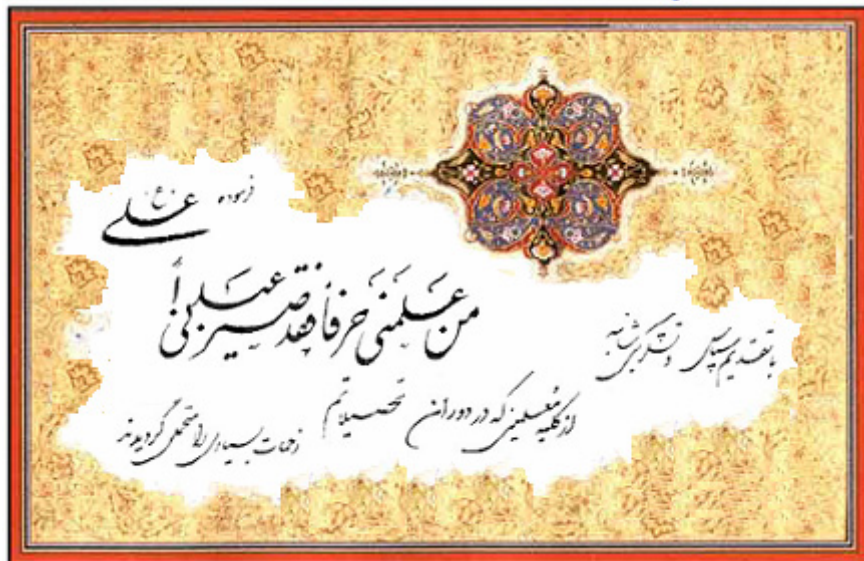 فرموده علی (ع)
من علمنی حرفاً فقد صیرنی عبداً
با تقدیم سپاس و تشکر بی شائبه
از کلیه معلمینی که در دوران تحصیلاتم
زحمات بسیاری را متحمل گردیدند